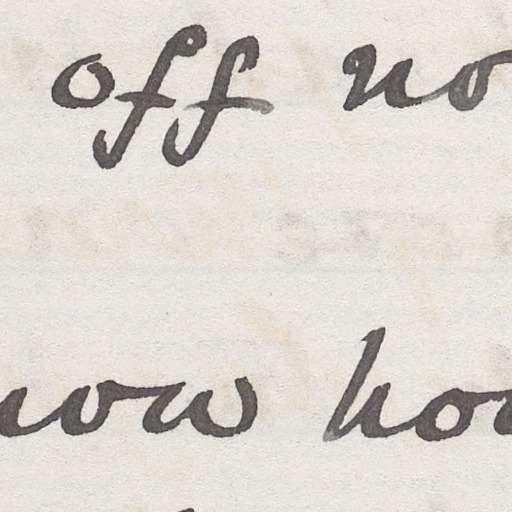 off no
now ho